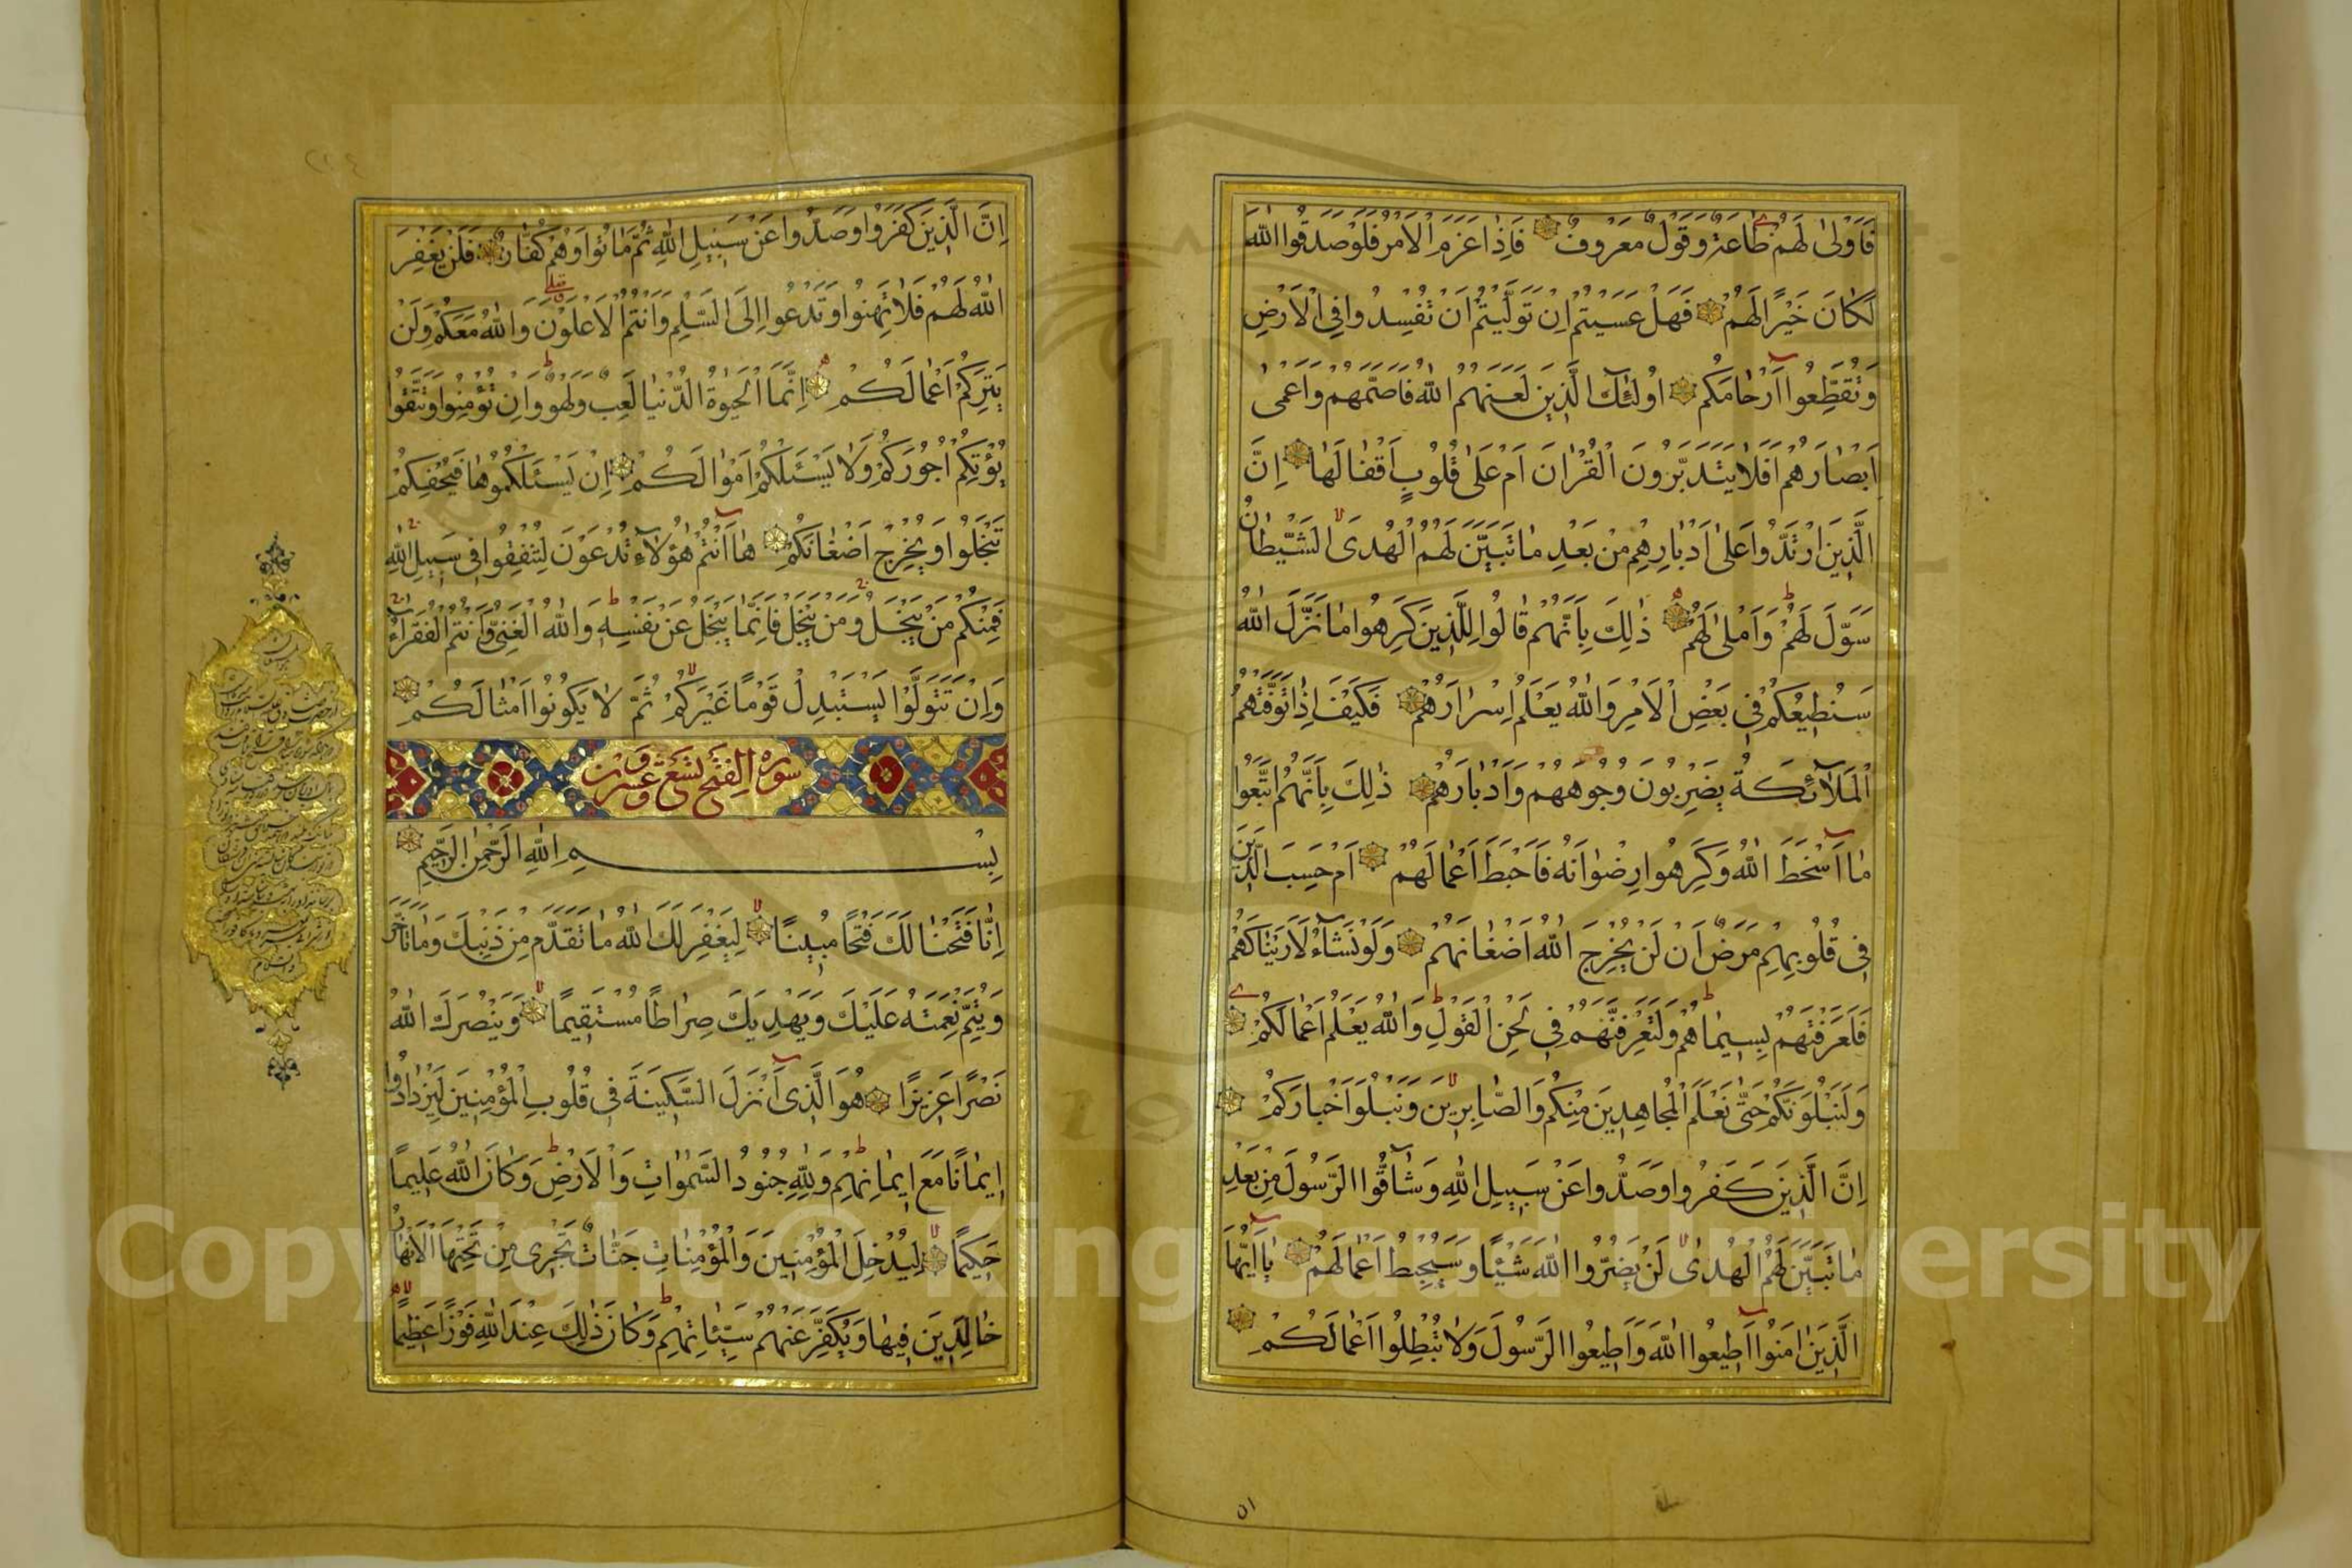 فَاَوْلىٰ لَهُمْ طَاعَةٌ وَقَوْلٌ مَعْرُوفٌ فَاِذَا عَزَمَ الْاَمْرُ فَلَوْ صَدَقُوا اللهَ
لَكَانَ خَيْرًا لَهُمْ فَهَلْ عَسَيْتُمْ اِنْ تَوَلَّيْتُمْ اَنْ تُفْسِدُوا فِي الْاَرْضِ
وَتُقَطِّعُوا اَرْحَامَكُم اُولٰئِكَ الَّذِينَ لَعَنَهُمُ اللهُ فَاَصَمَّهُمْ وَاَعْمىٰ
اَبْصَارَهُمْ اَفَلَا يَتَدَبَّرُونَ الْقُرْاٰنَ اَمْ عَلىٰ قُلُوبٍ اَقْفَالُهَا اِنَّ
الَّذِينَ ارْتَدُّوا عَلىٰ اَدْبَارِهِمْ مِنْ بَعْدِ مَا تَبَيَّنَ لَهُمُ الْهُدَى الشَّيْطَانُ
سَوَّلَ لَهُمْ وَاَمْلىٰ لَهُمْ ذٰلِكَ بِاَنَّهُمْ قَالُوا لِلَّذِينَ كَرِهُوا مَا نَزَّلَ اللهُ
سَنُطِيعُكُمْ فِي بَعْضِ الْاَمْرِ وَاللهُ يَعْلَمُ اِسْرَارَهُمْ فَكَيْفَ اِذَا تَوَفَّتْهُمُ
الْمَلَآئِكَةُ يَضْرِبُونَ وُجُوهَهُمْ وَاَدْبَارَهُمْ ذٰلِكَ بِاَنَّهُمُ اتَّبَعُوا
مَا اَسْخَطَ اللهَ وَكَرِهُوا رِضْوَانَهُ فَاَحْبَطَ اَعْمَالَهُمْ اَمْ حَسِبَ الَّذِينَ
فِي قُلُوبِهِمْ مَرَضٌ اَنْ لَنْ يُخْرِجَ اللهُ اَضْغَانَهُمْ وَلَوْ نَشَآءُ لَاَرَيْنَاكَهُمْ
فَلَعَرَفْتَهُمْ بِسِيمَاهُمْ وَلَتَعْرِفَنَّهُمْ فِي لَحْنِ الْقَوْلِ وَاللهُ يَعْلَمُ اَعْمَالَكُمْ
وَلَنَبْلُوَنَّكُمْ حَتّٰى نَعْلَمَ الْمُجَاهِدِينَ مِنْكُمْ وَالصَّابِرِينَ وَنَبْلُوَا اَخْبَارَكُمْ
اِنَّ الَّذِينَ كَفَرُوا وَصَدُّوا عَنْ سَبِيلِ اللهِ وَشَآقُّوا الرَّسُولَ مِنْ بَعْدِ
مَا تَبَيَّنَ لَهُمُ الْهُدىٰ لَنْ يَضُرُّوا اللهَ شَيْئًا وَسَيُحْبِطُ اَعْمَالَهُمْ يَا اَيُّهَا
الَّذِينَ اٰمَنُوا اَطِيعُوا اللهَ وَاَطِيعُوا الرَّسُولَ وَلَا تُبْطِلُوا اَعْمَالَكُمْ
ان
٢٢٤
اِنَّ الَّذِينَ كَفَرُوا وَصَدُّوا عَنْ سَبِيلِ اللهِ ثُمَّ مَاتُوا وَهُمْ كُفَّارٌ فَلَنْ يَغْفِرَ
اللهُ لَهُمْ فَلَا تَهِنُوا وَتَدْعُوا اِلَى السَّلْمِ وَاَنْتُمُ الْاَعْلَوْنَ وَاللهُ مَعَكُمْ وَلَنْ
يَتِرَكُمْ اَعْمَالَكُمْ اِنَّمَا الْحَيٰوةُ الدُّنْيَا لَعِبٌ وَلَهْوٌ وَاِنْ تُؤْمِنُوا وَتَتَّقُوا
يُؤْتِكُمْ اُجُورَكُمْ وَلَا يَسْئَلْكُمْ اَمْوَالَكُمْ اِنْ يَسْئَلْكُمُوهَا فَيُحْفِكُمْ
تَبْخَلُوا وَيُخْرِجْ اَضْغَانَكُمْ هَا اَنْتُمْ هٰؤُلَآءِ تُدْعَوْنَ لِتُنْفِقُوا فِي سَبِيلِ اللهِ
فَمِنْكُمْ مَنْ يَبْخَلُ وَمَنْ يَبْخَلْ فَاِنَّمَا يَبْخَلُ عَنْ نَفْسِهِ وَاللهُ الْغَنِيُّ وَاَنْتُمُ الْفُقَرَآءُ
وَاِنْ تَتَوَلَّوْا يَسْتَبْدِلْ قَوْمًا غَيْرَكُمْ ثُمَّ لَا يَكُونُوا اَمْثَالَكُمْ
سورة الفتح تسع وعشرون
بِسْمِ اللهِ الرَّحْمٰنِ الرَّحِيمِ
اِنَّا فَتَحْنَا لَكَ فَتْحًا مُبِينًا لِيَغْفِرَ لَكَ اللهُ مَا تَقَدَّمَ مِنْ ذَنْبِكَ وَمَا تَاَخَّرَ
وَيُتِمَّ نِعْمَتَهُ عَلَيْكَ وَيَهْدِيَكَ صِرَاطًا مُسْتَقِيمًا وَيَنْصُرَكَ اللهُ
نَصْرًا عَزِيزًا هُوَ الَّذِي اَنْزَلَ السَّكِينَةَ فِي قُلُوبِ الْمُؤْمِنِينَ لِيَزْدَادُوا
اِيمَانًا مَعَ اِيمَانِهِمْ وَلِلّٰهِ جُنُودُ السَّمٰوَاتِ وَالْاَرْضِ وَكَانَ اللهُ عَلِيمًا
حَكِيمًا لِيُدْخِلَ الْمُؤْمِنِينَ وَالْمُؤْمِنَاتِ جَنَّاتٍ تَجْرِي مِنْ تَحْتِهَا الْاَنْهَارُ
خَالِدِينَ فِيهَا وَيُكَفِّرَ عَنْهُمْ سَيِّئَاتِهِمْ وَكَانَ ذٰلِكَ عِنْدَ اللهِ فَوْزًا عَظِيمًا
Copyright © King Saud University